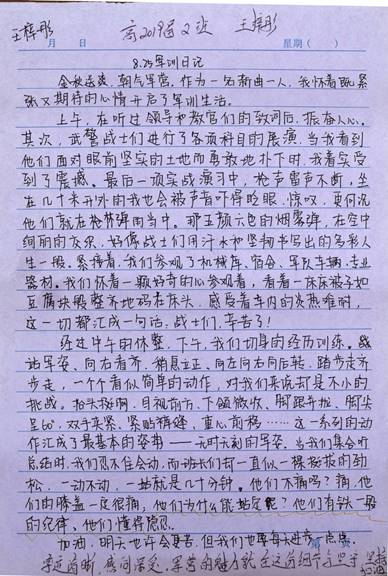 王梓彤 高2019届2班 王梓彤
月 日 星期( )
8.25军训日记
金秋送爽,朝气军营。作为一名新曲一人,我怀着既紧
张又期待的心情开启了军训生活。
上午,在听过领导和教官们的致词后,振奋人心。
其次,武警战士们进行了各项科目的展演,当我看到
他们面对眼前坚实的土地而勇敢地扑下时,我着实受
到了震撼。最后一项实战演习中,枪声雷声不断,坐
在几十米开外的我也会被声音吓得眨眼,惊叹,更何况
他们就在枪林弹雨当中。那五颜六色的烟雾弹,在空中
绚丽的灰尘,好像战士们用汗水和坚韧书写出的多彩人
生一般。紧接着,我们参观了机械库、宿舍、军队车辆、专业
器材。我们怀着一颗好奇的心参观着,看着一床床被子如
豆腐块般整齐地码在床头,感受着车内的炎热难耐,
这一切都汇成一句话:战士们,辛苦了!
经过中午的休整,下午,我们切身的经历训练。
站军姿、向右看齐、稍息立正、向左向右向后转、踏步走齐
步走,一个个看似简单的动作,对我们来说却是不小的
挑战。抬头挺胸,目视前方,下颌微收,脚跟并拢,脚尖
呈60°,双手夹紧,紧贴裤缝,重心前移……这一系列的动
作汇成了最基本的姿势——无时无刻的军姿。当我们集合听
总结时,我们忍不住会动,而班长们却一直似一棵挺拔的劲
松,一动不动,一站就是几十分钟。他们不痛吗?痛,他
们的膝盖一定很痛,他们为什么能站定呢?他们有铁一般
的纪律,他们懂得隐忍。
加油,明天也许会更苦,但我们也要每天进步一点点。